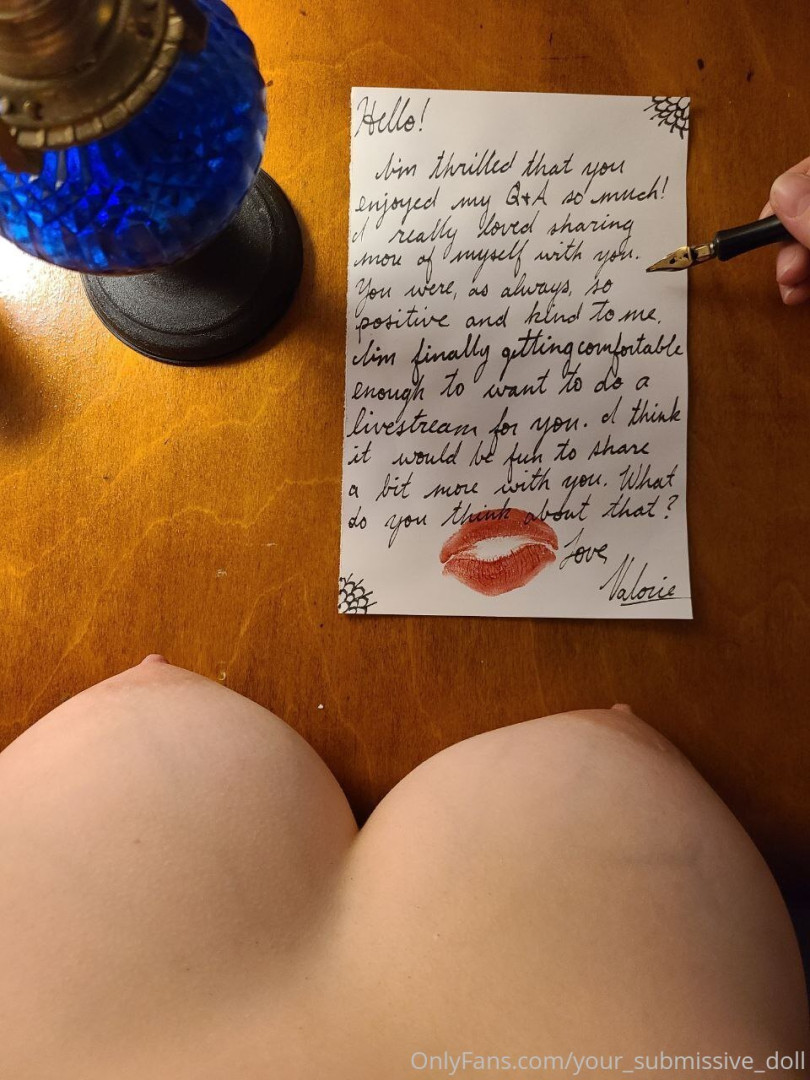 Hello!
I'm thrilled that you
enjoyed my Q&A so much!
I really loved sharing
more of myself with you.
You were, as always, so
positive and kind to me.
I'm finally getting comfortable
enough to want to do a
livestream for you. I think
it would be fun to share
a bit more with you. What
do you think about that?
Love,
Valorie
OnlyFans.com/your_submissive_doll